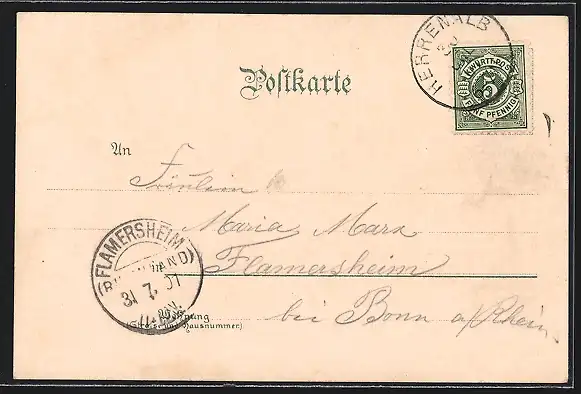 HERRENALB
30 JUL
K.WÜRTT.POST
5
FÜNF PFENNIG
Postkarte
An
Fräulein
Maria Marx
Flamersheim
bei Bonn a/Rhein
FLAMERSHEIM
(RHEINLAND)
31 7 97
11-12V.
Wohnung
(Strasse und Hausnummer)